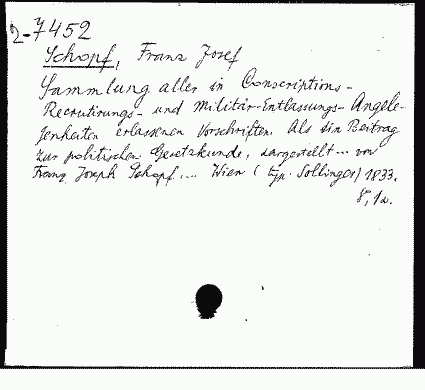 2-7452
Schopf, Franz Josef
Sammlung aller in Conscriptions-
Recrutirungs- und Militär-Entlassungs-Angele-
genheiten erlassenen Vorschriften. Als ein Beitrag
zur politischen Gesetzkunde, dargestellt ... von
Franz Joseph Schopf .... Wien (typ. Sollinger) 1833.
8°,